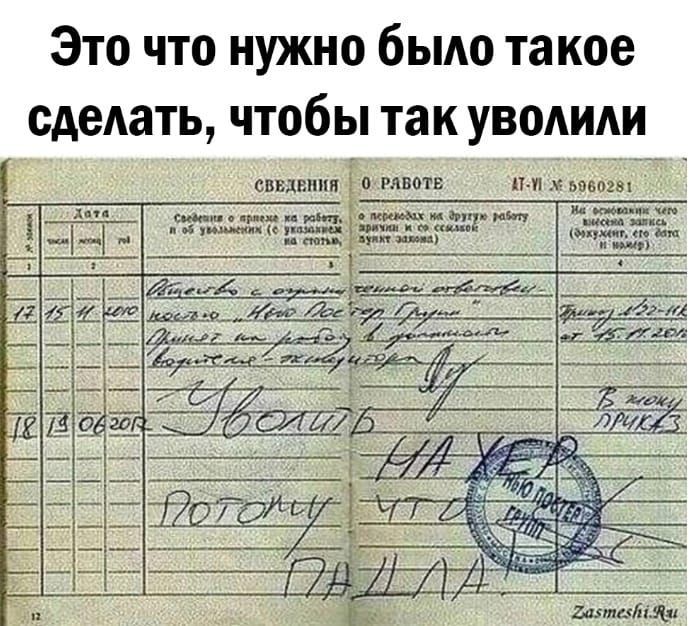 Это что нужно было такое
сделать, чтобы так уволили
СВЕДЕНИЯ О РАБОТЕ АТ-VI № 5960281
Дата
Сведения о приеме на работу, о переводах на другую работу
и об увольнении (с указанием причин и со ссылкой
на статью, пункт закона)
На основании чего
внесена запись
(документ, его дата
и номер)
число месяц год
1 2 3 4
Общество с ограниченной ответствен-
17 15 11 2010 ностью „Нью Постер Групп" Приказ №22-НК
Принят на работу в должности от 15.11.2010
водителя-экспедитора
В жопу
18 19 06 2017 Уволить ПРИКАЗ
НАХЕР
ПОТОМУ ЧТО
НЬЮ ПОСТЕР
ГРУПП
ПАДЛА
12
ZasmeshiRu